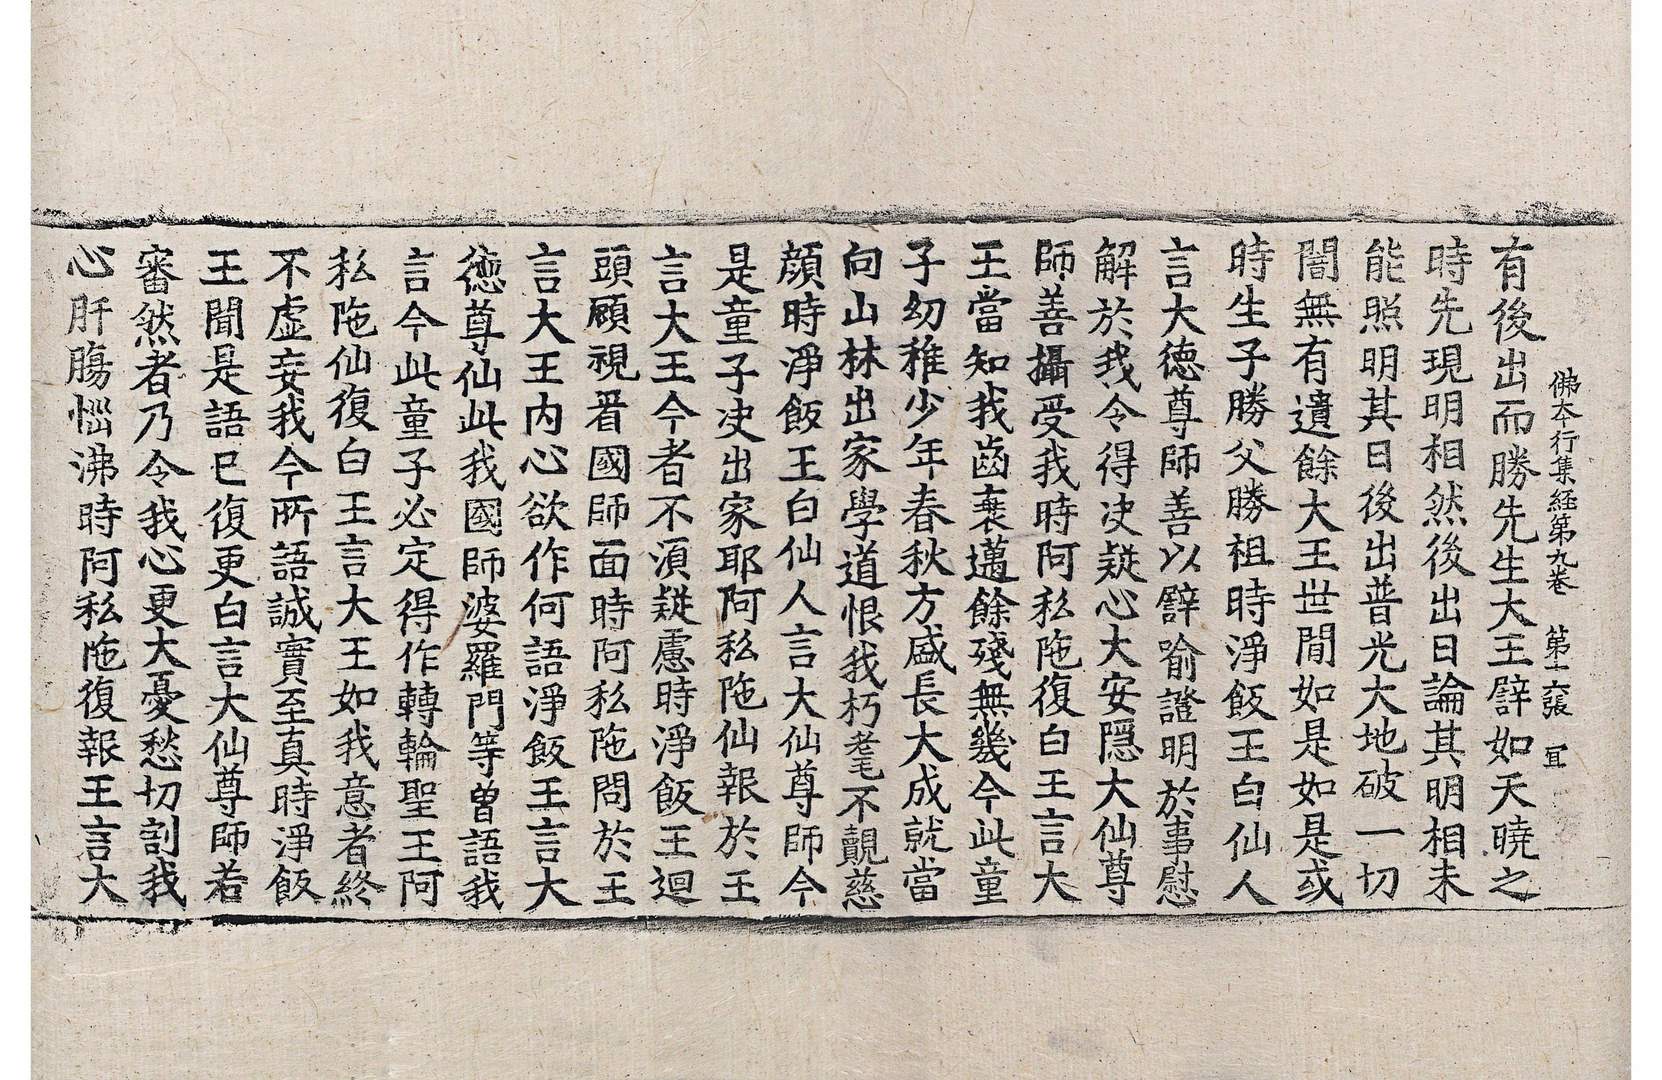 佛本行集經第九卷 第十六張 冝
有後出而勝先生大王譬如天曉之
時先現明相然後出日論其明相未
能照明其日後出普光大地破一切
闇無有遺餘大王世間如是如是或
時生子勝父勝祖時淨飯王白仙人
言大德尊師善以譬喻證明於事慰
解於我令得决疑心大安隱大仙尊
師善攝受我時阿私陁復白王言大
王當知我齒衰邁餘殘無幾今此童
子幼稚少年春秋方盛長大成就當
向山林出家學道恨我朽耄不覩慈
顔時淨飯王白仙人言大仙尊師今
是童子决出家耶阿私陁仙報於王
言大王今者不湏疑慮時淨飯王迴
頭顧視㸔國師面時阿私陁問於王
言大王内心欲作何語淨飯王言大
德尊仙此我國師婆羅門等曽語我
言今此童子必定得作轉輪聖王阿
私陁仙復白王言大王如我意者終
不虛妄我今所語誠實至真時淨飯
王聞是語已復更白言大仙尊師若
審然者乃令我心更大憂愁切割我
心肝腸惱沸時阿私陁復報王言大